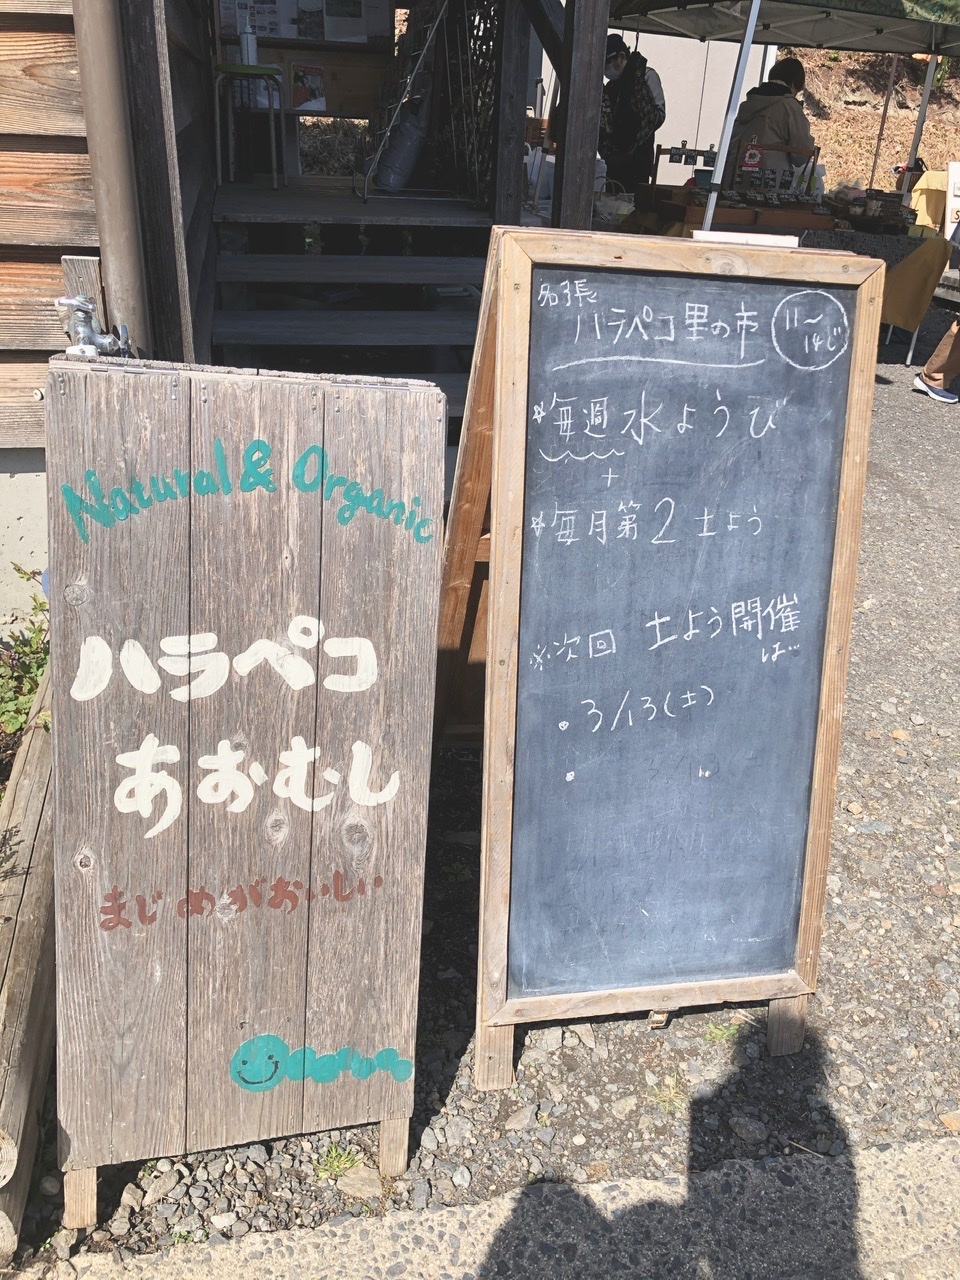 Natural & Organic
ハラペコ
あおむし
まじめがおいしい
名張
ハラペコ里の市
11〜
14じ
*毎週水ようび
+
*毎月第2土よう
※次回 土よう開催
は…
・3/13(土)